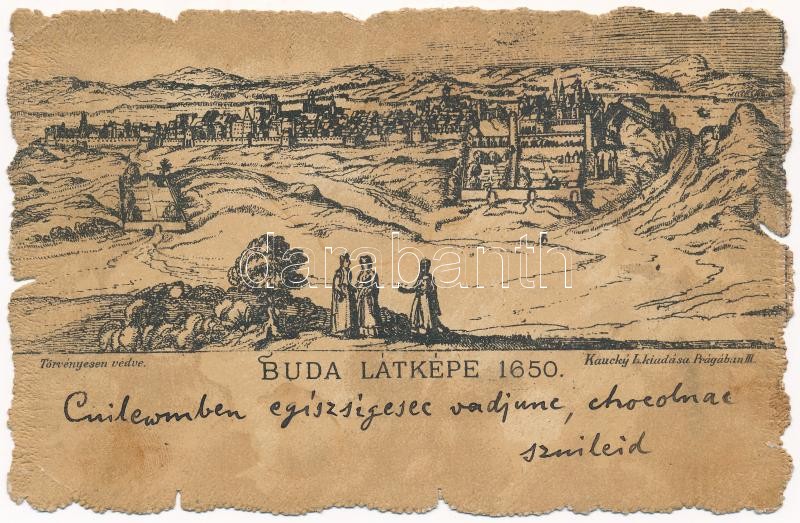 darabanth
Törvényesen védve.
BUDA LÁTKÉPE 1650.
Kaucký L. kiadása Prágában III.
Cuilewmben egiszsigesec vadjunc, chocolnac
szuileid